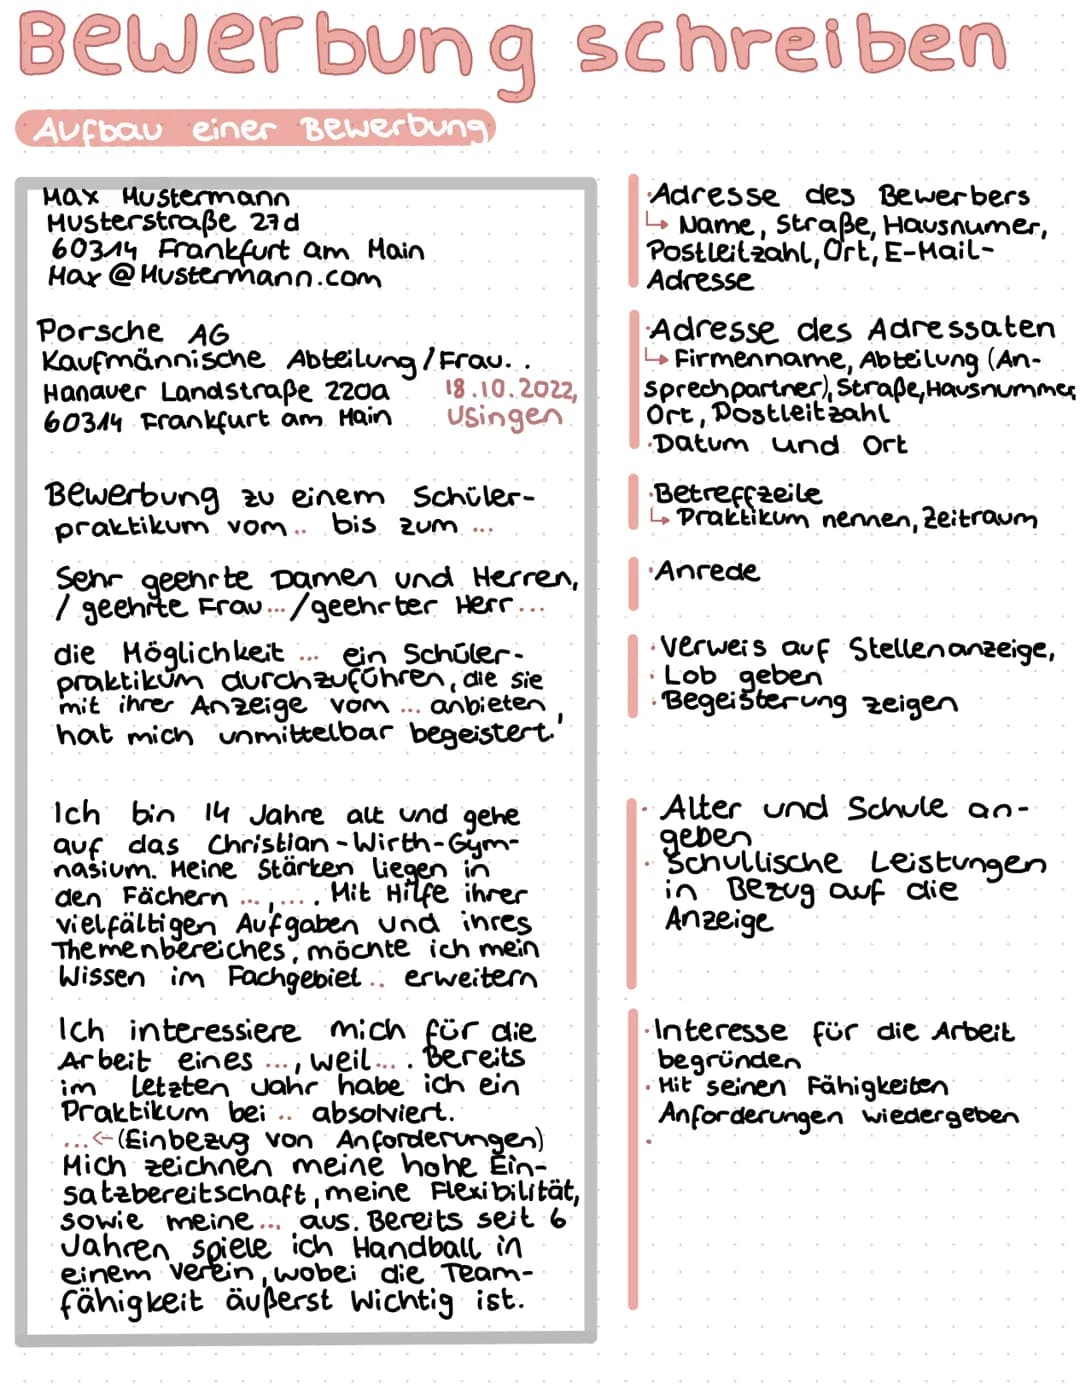 Bewerbung schreiben
Aufbau einer Bewerbung
Max Mustermann
Musterstraße 27d
60314 Frankfurt am Main
Max@Mustermann.com
Porsche AG
Kaufmännische Abteilung/Frau..
Hanauer Landstraße 220a
60314 Frankfurt am Main
18.10.2022,
Usingen
Bewerbung zu einem Schüler-
praktikum vom .. bis zum ...
Sehr geehrte Damen und Herren,
/ geehrte Frau ... /geehrter Herr ...
die Möglichkeit ... ein Schüler-
praktikum durchzuführen, die sie
mit ihrer Anzeige vom ... anbieten,
hat mich unmittelbar begeistert.
Ich bin 14 Jahre alt und gehe
auf das Christian-Wirth-Gym-
nasium. Meine Stärken liegen in
den Fächern ..., ... . Mit Hilfe ihrer
vielfältigen Aufgaben und ihres
Themenbereiches, möchte ich mein
Wissen im Fachgebiet .. erweitern
Ich interessiere mich für die
Arbeit eines ..., weil ... . Bereits
im letzten Jahr habe ich ein
Praktikum bei .. absolviert.
... ← (Einbezug von Anforderungen)
Mich zeichnen meine hohe Ein-
satzbereitschaft, meine Flexibilität,
sowie meine ... aus. Bereits seit 6
Jahren spiele ich Handball in
einem Verein, wobei die Team-
fähigkeit äußerst wichtig ist.
·Adresse des Bewerbers
↳ Name, Straße, Hausnumer,
Postleitzahl, Ort, E-Mail-
Adresse
·Adresse des Adressaten
↳ Firmenname, Abteilung (An-
sprechpartner), Straße, Hausnummer
Ort, Postleitzahl
·Datum und Ort
·Betreffzeile
↳ Praktikum nennen, Zeitraum
·Anrede
· Verweis auf Stellenanzeige,
· Lob geben
· Begeisterung zeigen
· Alter und Schule an-
geben
· Schullische Leistungen
in Bezug auf die
Anzeige
·Interesse für die Arbeit
begründen
· Mit seinen Fähigkeiten
Anforderungen wiedergeben
·